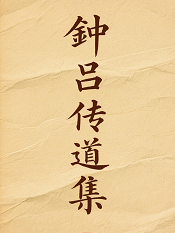 鈡吕传道集